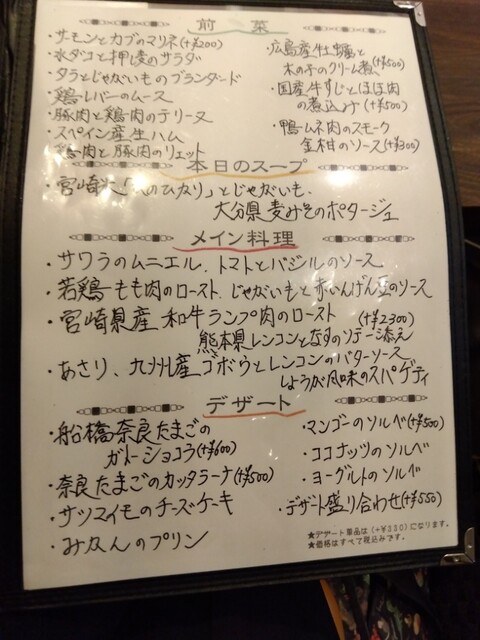 前菜
・サーモンとカブのマリネ(+¥200)
・水ダコと押し麦のサラダ
・タラとじゃがいものブランダード
・鶏レバーのムース
・豚肉と鶏肉のテリーヌ
・スペイン産生ハム
・鶏肉と豚肉のリエット
・広島産牡蠣と
木の子のクリーム煮(+¥500)
・国産牛すじとほほ肉
の煮込み(+¥500)
・鴨ムネ肉のスモーク
金柑のソース(+¥300)
本日のスープ
・宮崎米「ひのひかり」とじゃがいも、
大分県麦みそのポタージュ
メイン料理
・サワラのムニエル、トマトとバジルのソース
・若鶏もも肉のロースト、じゃがいもと赤いんげん豆のソース
・宮崎県産 和牛ランプ肉のロースト (+¥2,300)
熊本県レンコンとなすのソテー添え
・あさり、九州産ゴボウとレンコンのバターソース
しょうが風味のスパゲティ
デザート
・船橋奈良たまごの
ガトーショコラ(+¥600)
・奈良たまごのカッサラーナ(+¥500)
・サツマイモのチーズケーキ
・みかんのプリン
・マンゴーのソルベ(+¥500)
・ココナッツのソルベ
・ヨーグルトのソルベ
・デザート盛り合わせ(+¥550)
★デザート単品は(+¥330)になります。
★価格はすべて税込みです。